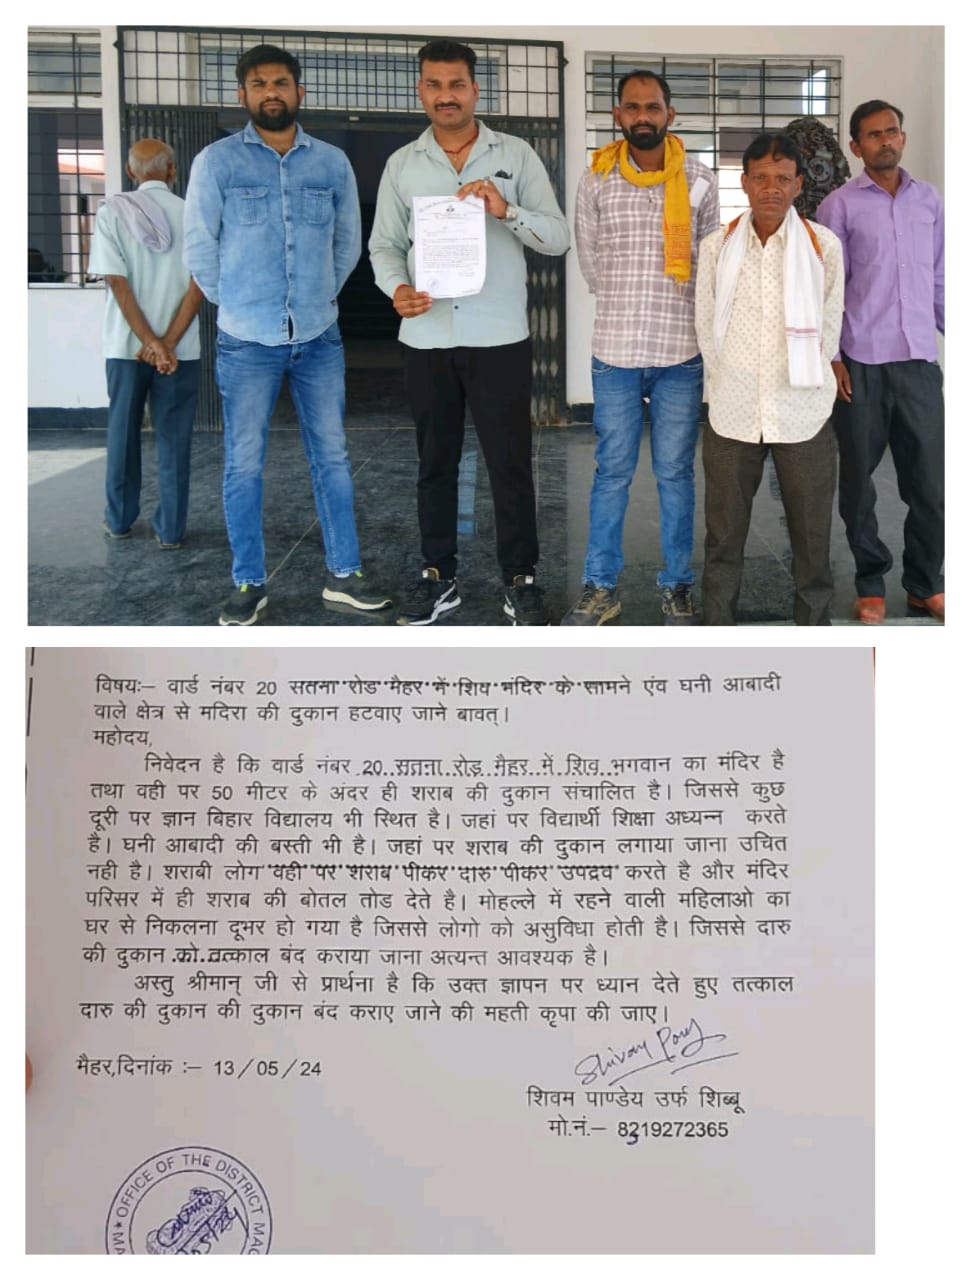 विषयः– वार्ड नंबर 20 सतना रोड मैहर में शिव मंदिर के सामने एंव घनी आबादी
वाले क्षेत्र से मदिरा की दुकान हटवाए जाने बावत्।
महोदय,
निवेदन है कि वार्ड नंबर 20 सतना रोड़ मैहर में शिव भगवान का मंदिर है
तथा वही पर 50 मीटर के अंदर ही शराब की दुकान संचालित है। जिससे कुछ
दूरी पर ज्ञान बिहार विद्यालय भी स्थित है। जहां पर विद्यार्थी शिक्षा अध्यन्न करते
है। घनी आबादी की बस्ती भी है। जहां पर शराब की दुकान लगाया जाना उचित
नही है। शराबी लोग वही पर शराब पीकर दारु पीकर उपद्रव करते है और मंदिर
परिसर में ही शराब की बोतल तोड देते है। मोहल्ले में रहने वाली महिलाओ का
घर से निकलना दूभर हो गया है जिससे लोगो को असुविधा होती है। जिससे दारु
की दुकान को तत्काल बंद कराया जाना अत्यन्त आवश्यक है।
अस्तु श्रीमान् जी से प्रार्थना है कि उक्त ज्ञापन पर ध्यान देते हुए तत्काल
दारु की दुकान की दुकान बंद कराए जाने की महती कृपा की जाए।
मैहर,दिनांक :– 13/05/24
शिवम पाण्डेय उर्फ शिब्बू
मो.नं.– 8319272365
OFFICE OF THE DISTRICT